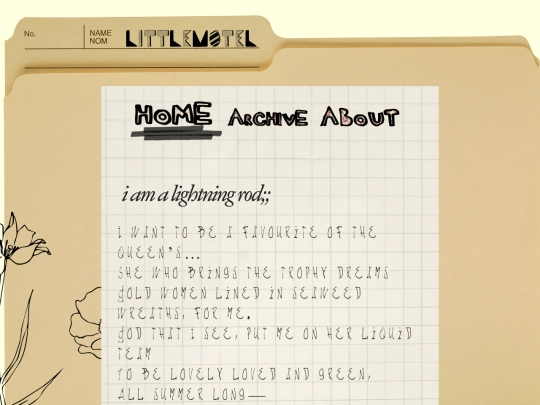 No.
NAME
NOM
LITTLEMOTEL
HOME ARCHIVE ABOUT
i am a lightning rod;;
I WANT TO BE A FAVOURITE OF THE
QUEEN'S...
SHE WHO BRINGS THE TROPHY DREAMS
GOLD WOMEN LINED IN SEAWEED
WREATHS, FOR ME.
GOD THAT I SEE, PUT ME ON HER LIQUID
TEAM
TO BE LOVELY LOVED AND GREEN,
ALL SUMMER LONG—